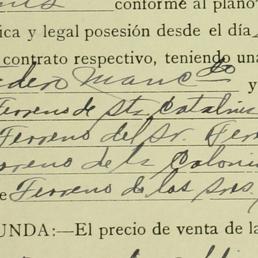 conforme al plano
ica y legal posesión desde el día
contrato respectivo, teniendo una
y
Terreno de Sta Catalin
Terreno del Sr. Ferr
rreno de la Coloni
e Terreno de los Sres
UNDA:—El precio de venta de la